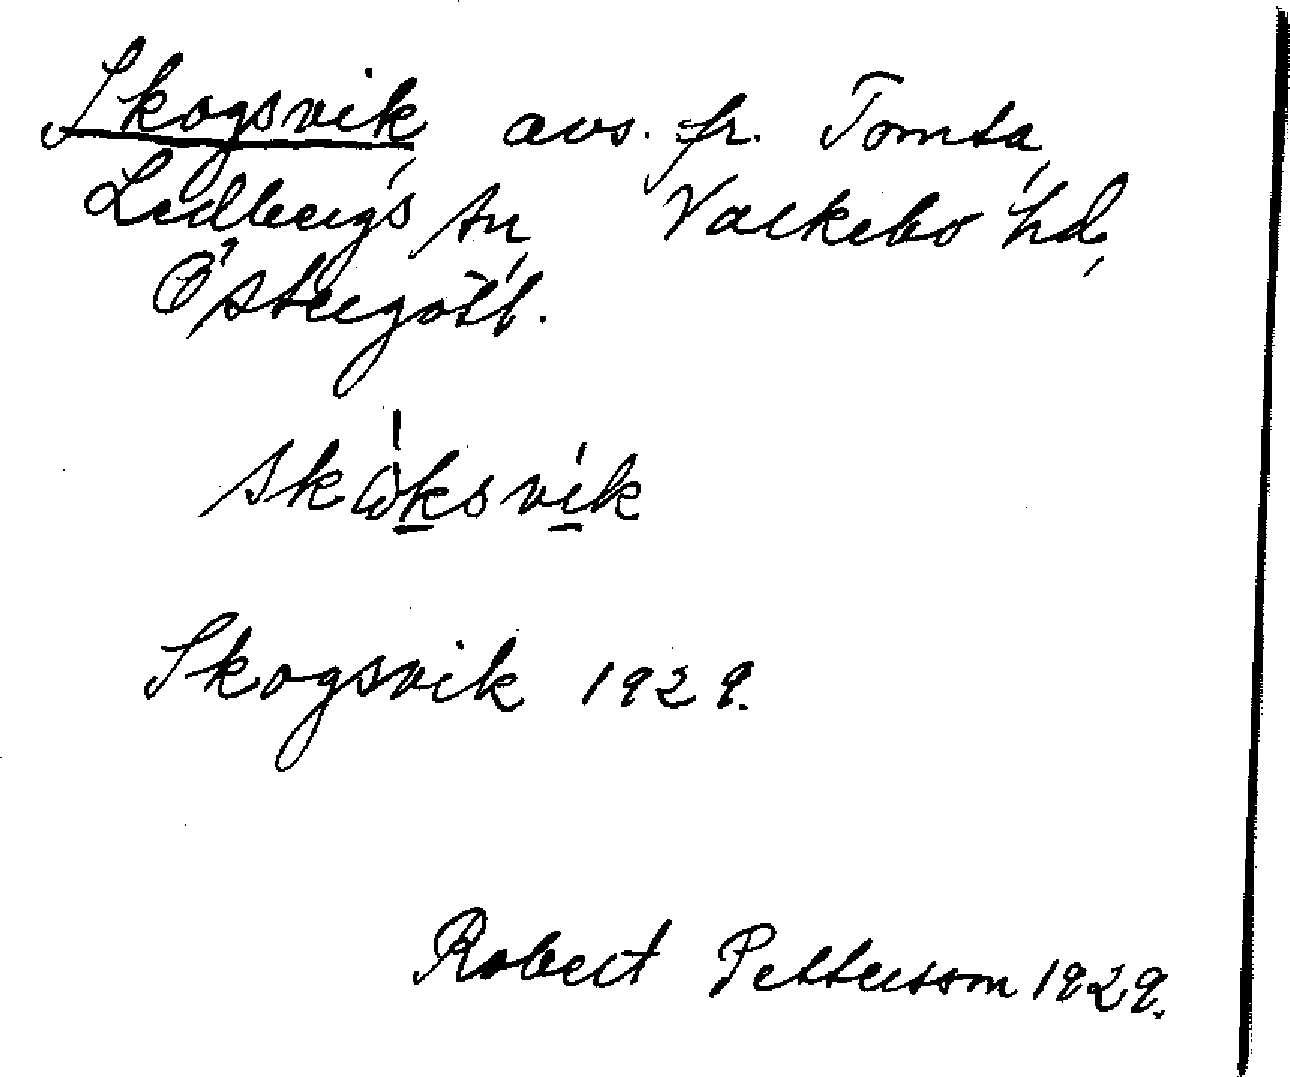 Skogsvik, avs. fr. Tomta,
Ledbergs sn, Valkebo hd,
Östergötl.
skòksvik
Skogsvik 1929.
Robert Pettersson 1929.